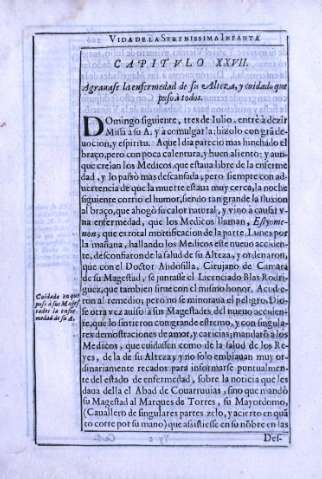 VIDA DE LA SERENISSIMA INFANTA
CAPITVLO XXVII.
Agrauase la enfermedad de su Alteza, y cuidado que
puso à todos.
DOmingo siguiente, tres de Iulio, entrè à dezir
Missa à su A. y à comulgarla: hizolo con grã de-
uocion, y espiritu. Aquel dia parecio mas hinchado el
braço, pero con poca calentura, y buen aliento; y aun-
que creian los Medicos, que estaua libre de la enferme
dad, y lo passò mas descansada, pero siempre con ad-
uertencia de que la muerte estaua muy cerca, la noche
siguiente corrio el humor, siendo tan grande la fluxion
al braço, que ahogò su calor natural, y vino à causar v-
na enfermedad, que los Medicos llaman, Estyome-
nos, que es total mortificacion de la parte. Lunes por
la mañana, hallando los Medicos este nueuo acciden-
te, desconfiaron de la salud de su Alteza, y ordenaron,
que con el Doctor Andosilla, Cirujano de Camara
de su Magestad, se juntasse el Licenciado Blas Rodri-
guez, que tambien sirue con el mismo honor. Acudie-
ron al remedio, pero no se minoraua el peligro. Dio-
se otra vez auiso à sus Magestades del nueuo acciden-
te, que lo sintieron con grande estremo, y con singula-
res demostraciones de amor, y caricia; mandarõ à los
Medicos, que cuidassen como de la salud de los Re-
yes, de la de su Alteza; y no solo embiauan muy or-
dinariamente recados para informarse puntualmen-
te del estado de enfermedad, sobre la noticia que les
daua della el Abad de Couarruuias, sino que mandò
su Magestad al Marques de Torres, su Mayordomo,
(Cauallero de singulares partes, zelo, y acierto en quã
to corre por su mano) que assistiesse en su nõbre en las
Des-
Cuidado en que
puso à sus Mages
tades la enfer-
medad de su A.